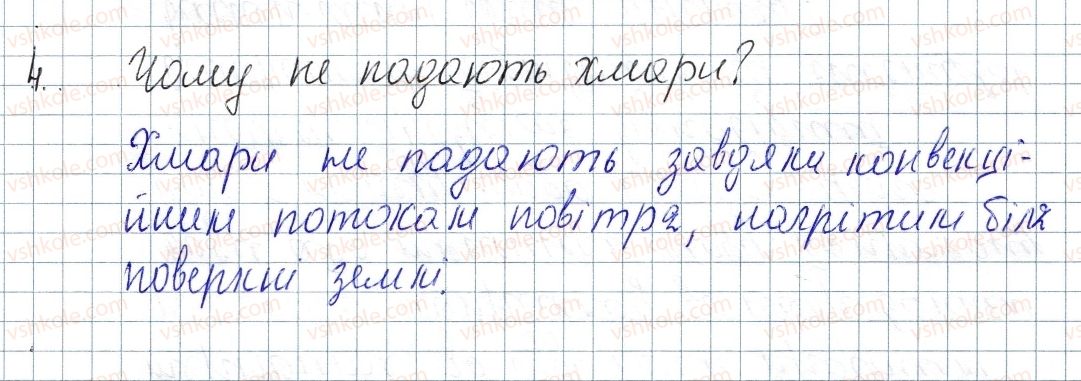 4. Чому не падають хмари?
Хмари не падають завдяки конвекці-
йним потокам повітря, нагрітим біля
поверхні землі.